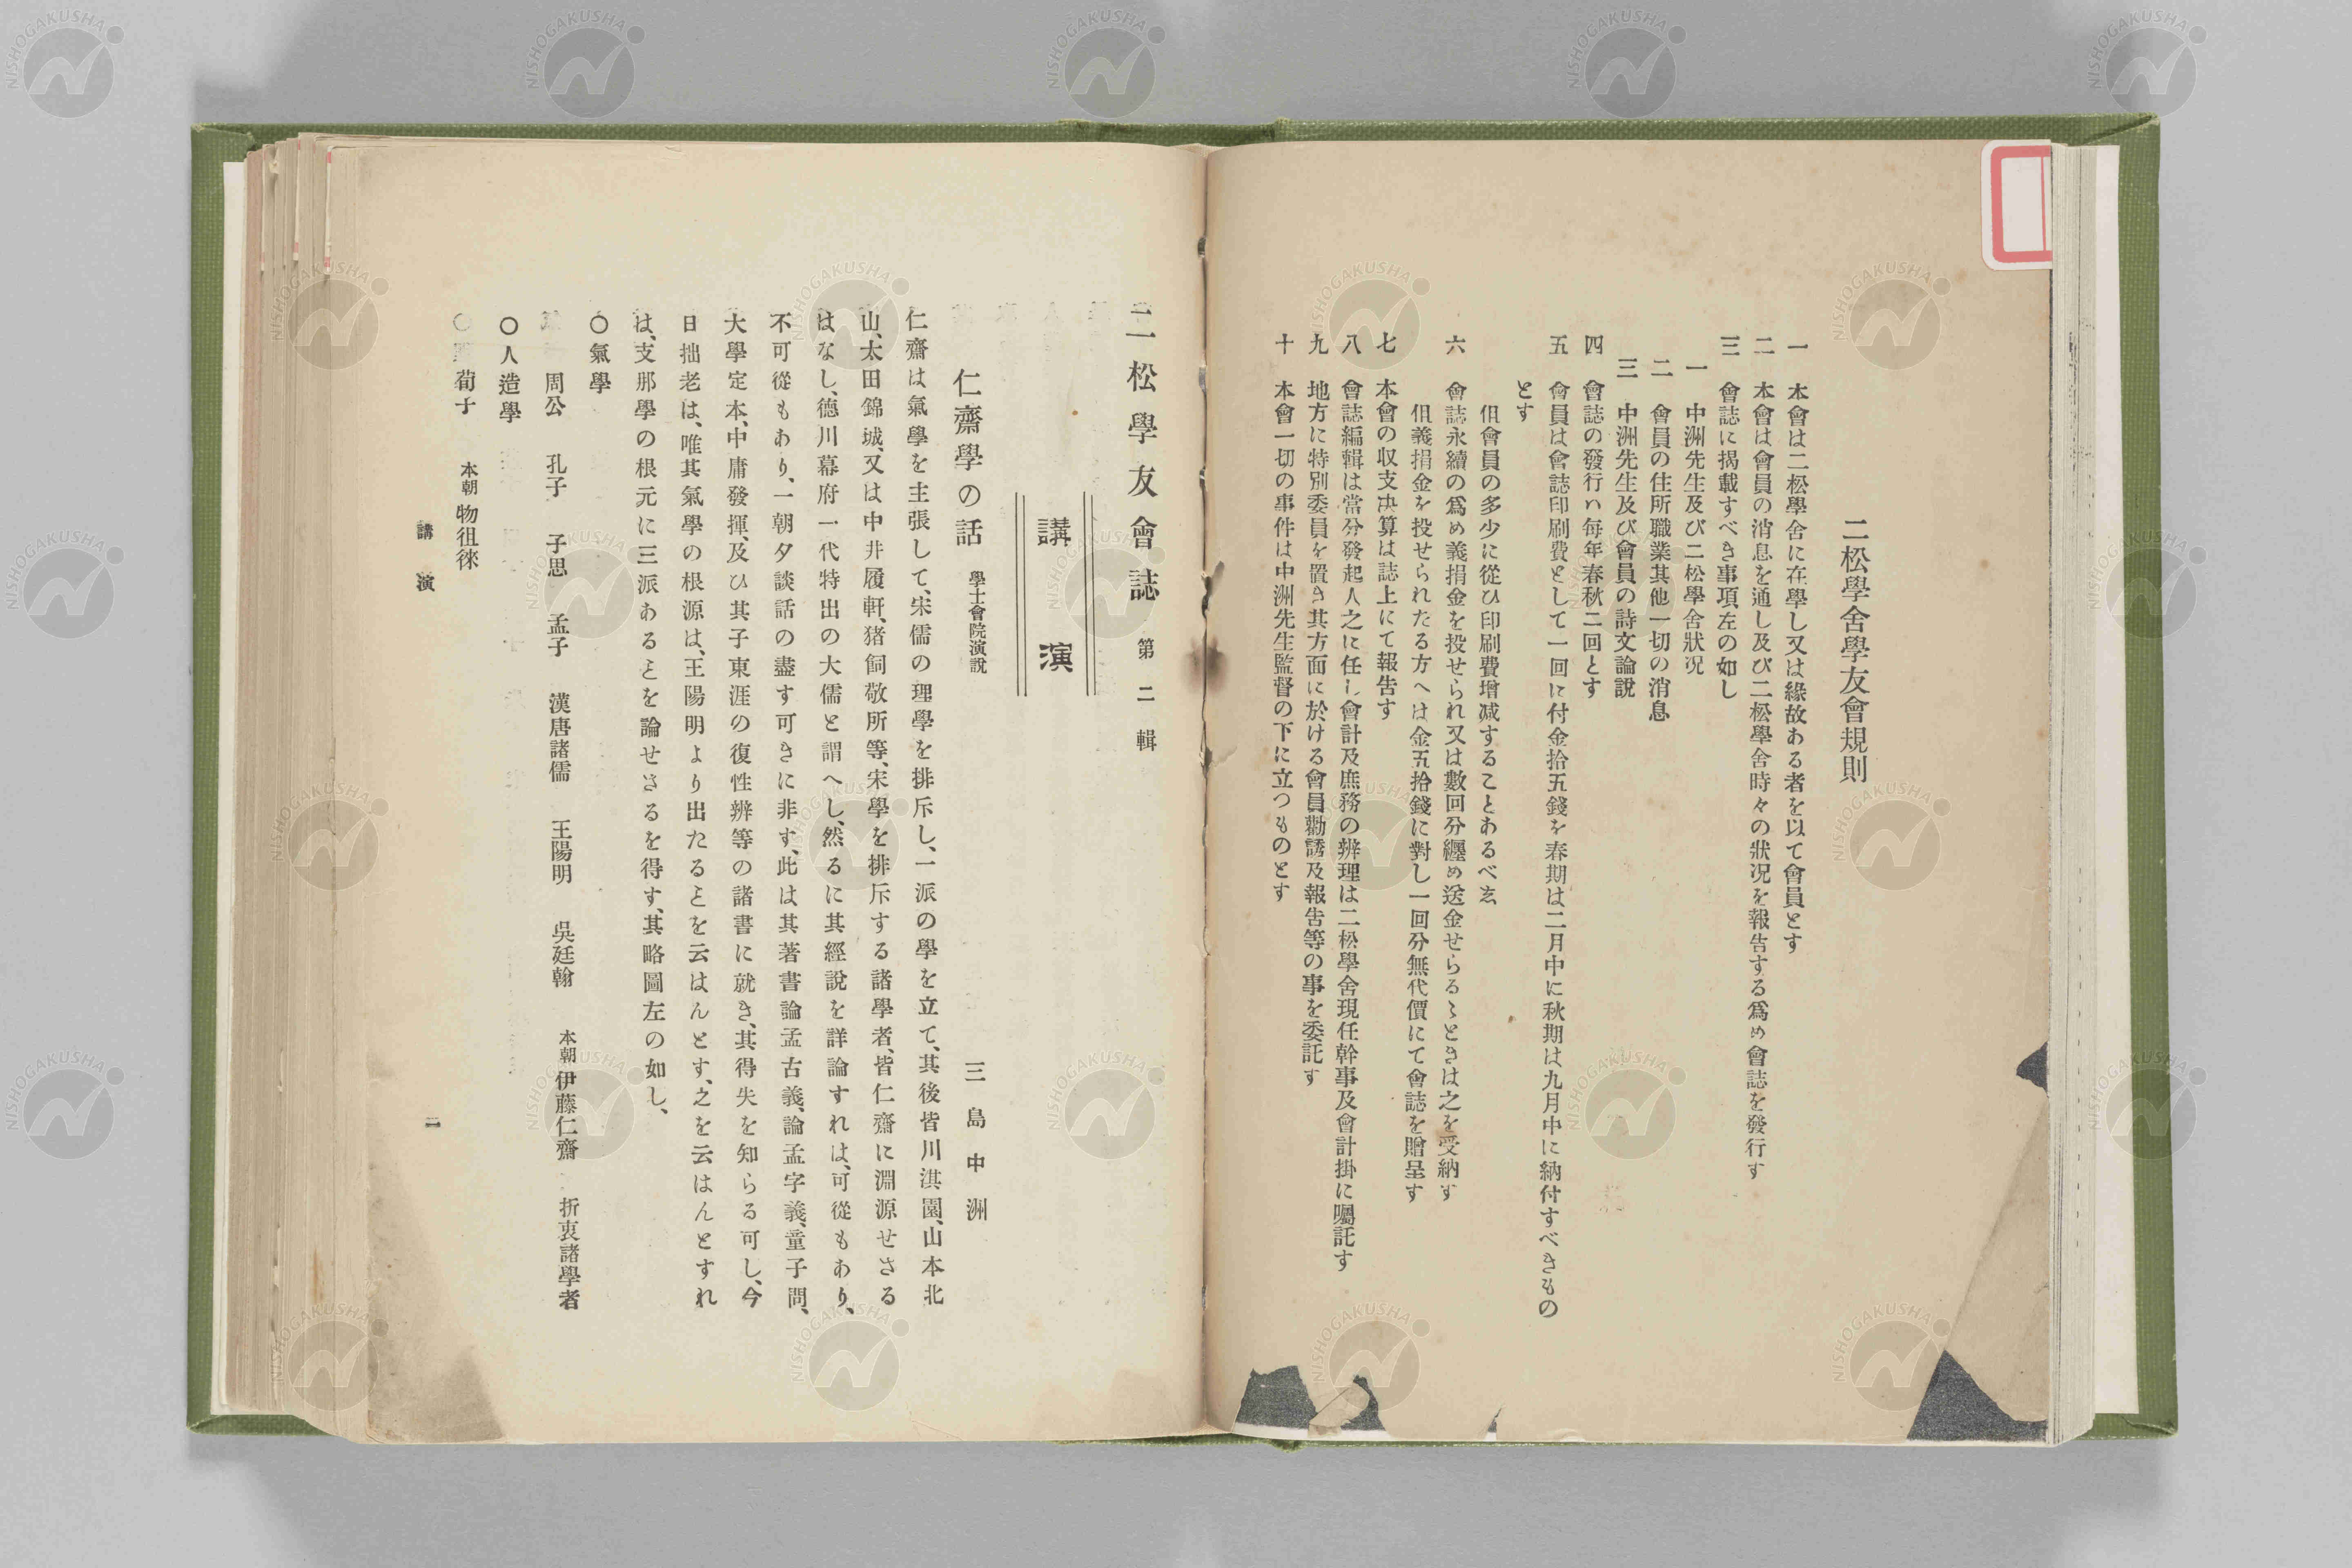 二松學舍學友會規則
一 本會は二松學舍に在學し又は緣故ある者を以て會員とす
二 本會は會員の消息を通し及び二松學舍時々の狀况を報告する爲め會誌を發行す
三 會誌に揭載すべき事項左の如し
一 中洲先生及び二松學舍狀况
二 會員の住所職業其他一切の消息
三 中洲先生及び會員の詩文論說
四 會誌の發行ハ每年春秋二回とす
五 會員は會誌印刷費として一回に付金拾五錢を春期は二月中に秋期は九月中に納付すべきもの
とす
但會員の多少に從ひ印刷費增减することあるべゑ
六 會誌永續の爲め義捐金を投せられ又は數回分纒め送金せらるゝときは之を受納す
但義捐金を投せられたる方へは金五拾錢に對し一回分無代價にて會誌を贈呈す
七 本會の収支决算は誌上にて報告す
八 會誌編輯は當分發起人之に任し會計及庶務の辨理は二松學舍現任幹事及會計掛に囑託す
九 地方に特別委員を置き其方面に於ける會員勸誘及報告等の事を委託す
十 本會一切の事件は中洲先生監督の下に立つものとす
二松學友會誌 第二輯
講演
仁齋學の話 學士會院演說 三島中洲
仁齋は氣學を主張して、宋儒の理學を排斥し、一派の學を立て、其後皆川淇園、山本北
山、太田錦城、又は中井履軒、猪飼敬所等、宋學を排斥する諸學者、皆仁齋に淵源せさる
はなし、德川幕府一代特出の大儒と謂へし、然るに其經說を詳論すれは、可從もあり、
不可從もあり、一朝夕談話の盡す可きに非す、此は其著書論孟古義、論孟字義、童子問、
大學定本、中庸發揮、及ひ其子東涯の復性辨等の諸書に就き、其得失を知らる可し、今
日拙老は、唯其氣學の根源は、王陽明より出たるとを云はんとす、之を云はんとすれ
は、支那學の根元に三派あるとを論せさるを得す、其略圖左の如し、
〇氣學
周公 孔子 子思 孟子 漢唐諸儒 王陽明 吳廷翰 本朝伊藤仁齋 折衷諸學者
〇人造學
荀子 本朝物徂徠
講演 二
NISHOGAKUSHA